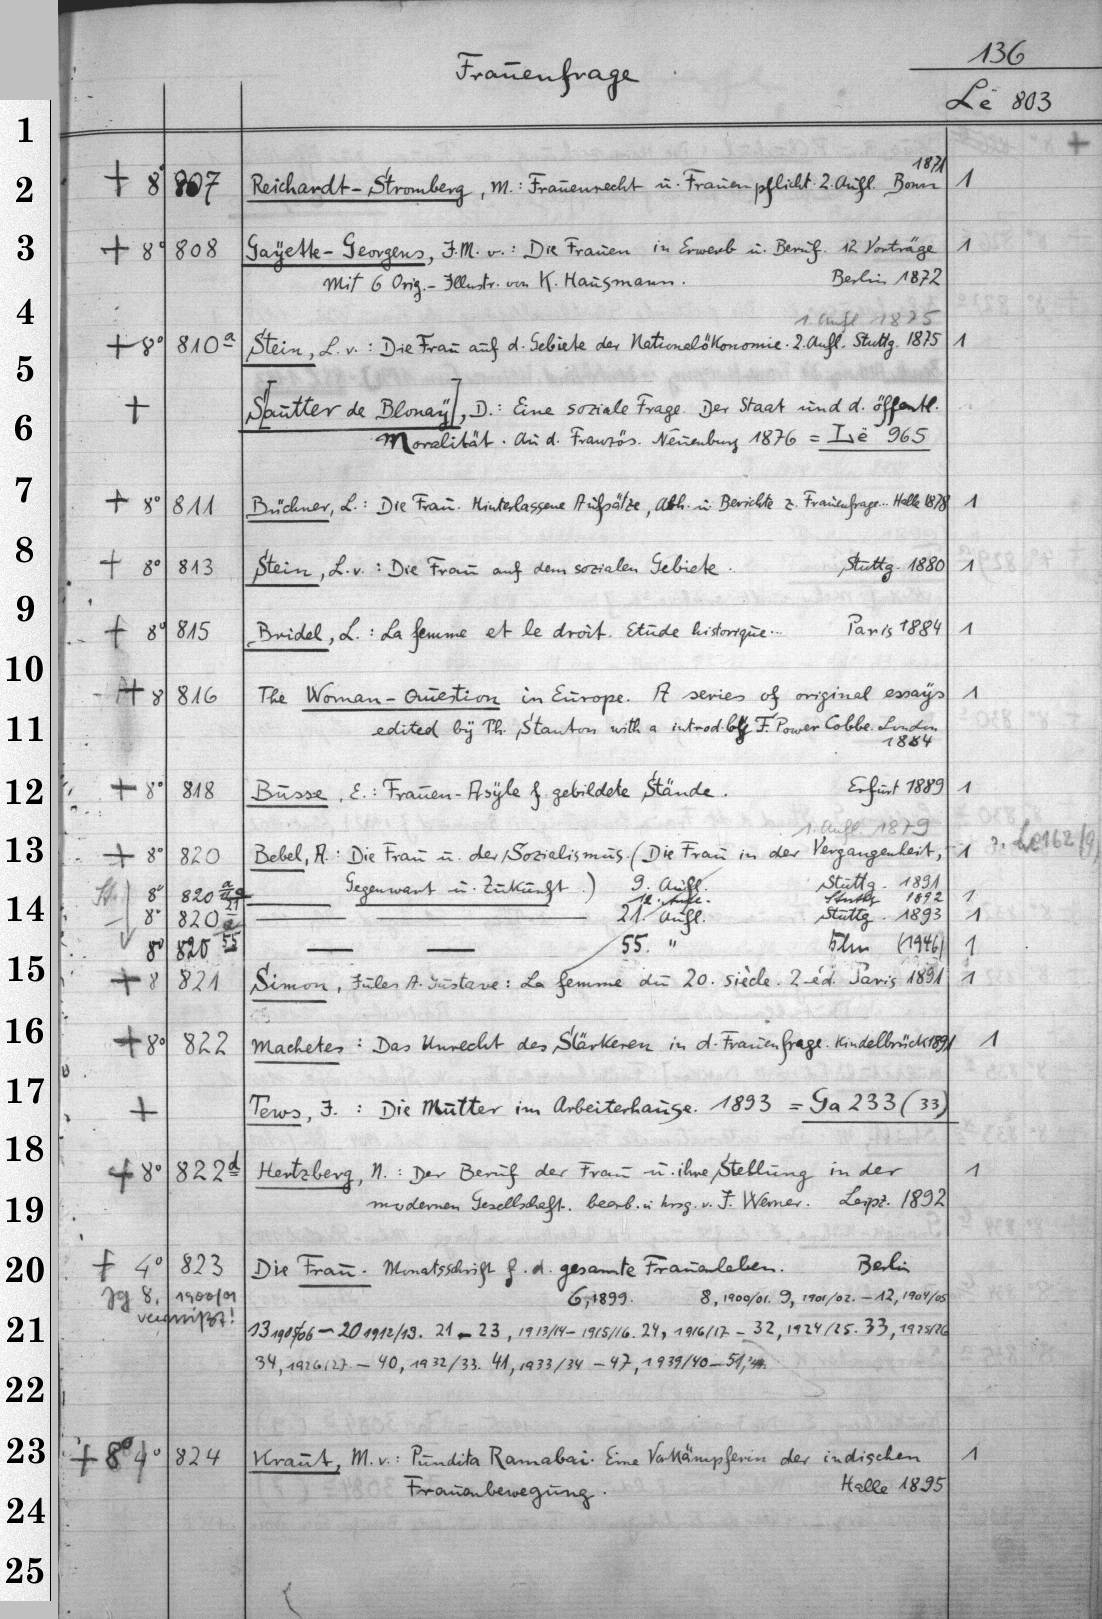 136
Frauenfrage
Lë 803
1
1871
2 + 8° 807 Reichardt-Stromberg, M.: Frauenrecht u. Frauenpflicht. 2. Aufl. Bonn 1
3 + 8° 808 Gayette-Georgens, J.M. v.: Die Frauen in Erwerb u. Beruf. 12 Vorträge 1
Mit 6 Orig.-Illustr. von K. Hausmann. Berlin 1872
4 1. Aufl 1875
+ 8° 810a Stein, L. v.: Die Frau auf d. Gebiete der Nationalökonomie. 2. Aufl. Stuttg. 1875 1
5
+ S[autter de Blonay], D.: Eine soziale Frage. Der Staat und d. öffentl.
6 Moralität. Au d. Französ. Neuenburg 1876 = Lë 965
7 + 8° 811 Büchner, L.: Die Frau. Hinterlassene Aufsätze, Abh. u. Berichte z. Frauenfrage.. Halle 1878 1
8 + 8° 813 Stein, L. v.: Die Frau auf dem sozialen Gebiete. Stuttg. 1880 1
9 + 8° 815 Bridel, L.: La femme et le droit. Etude historique... Paris 1884 1
10 + 8 816 The Woman-Question in Europe. A series of original essays 1
11 edited by Th. Stanton with a introd. by F. Power Cobbe. London
1884
12 + 8° 818 Busse, E.: Frauen-Asyle f. gebildete Stände. Erfurt 1889 1
1. Aufl. 1879
13 + 8° 820 Bebel, A.: Die Frau u. der Sozialismus. (Die Frau in der Vergangenheit, 1
Gegenwart u. Zukunft.) 9. Aufl. Stuttg. 1891
14 8° 820 Stuttg. 1892 1
8° 820 21. Aufl. Stuttg. 1893 1
8° 820 55 55. " Ulm (1946) 1
15 + 8 821 Simon, Jules A. Gustave: La femme du 20. siècle. 2-éd. Paris 1891 1
16 + 8° 822 Machetes: Das Unrecht des Stärkeren in d. Frauenfrage. Kindelbrück 1891 1
17 + Tews, J.: Die Mutter im Arbeiterhause. 1893 = Ga 233 (33)
18 + 8° 822d Hertzberg, N.: Der Beruf der Frau u. ihre Stellung in der 1
19 modernen Gesellschaft. bearb. u. hrsg. v. J. Werner. Leipz. 1892
20 + 4° 823 Die Frau. Monatsschrift f. d. gesamte Frauenleben. Berlin
Jg 8, 1900/01 6, 1899. 8, 1900/01. 9, 1901/02. - 12, 1904/05
vermißt!
21 13 1905/06 - 20 1912/13. 21 - 23, 1913/14 - 1915/16. 24, 1916/17 - 32, 1924/25. 33, 1925/26
34, 1926/27. - 40, 1932/33. 41, 1933/34 - 47, 1939/40 - 51,
22
23 + 8° 4° 824 Kraut, M. v.: Pundita Ramabai. Eine Vorkämpferin der indischen 1
24 Frauenbewegung. Halle 1895
25